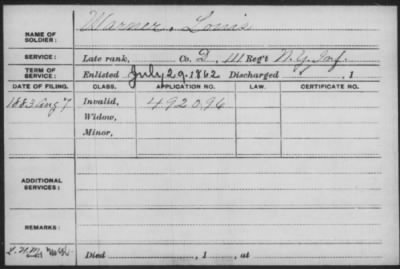 NAME OF SOLDIER: Warner, Louis
SERVICE: Late rank, Co. D, 111 Reg't N.Y. Inf.
TERM OF SERVICE: Enlisted July 29, 1862 Discharged , 1
DATE OF FILING. CLASS. APPLICATION NO. LAW. CERTIFICATE NO.
1883 Aug 7 Invalid, 492096
Widow,
Minor,
ADDITIONAL SERVICES:
REMARKS:
Died , 1 , at